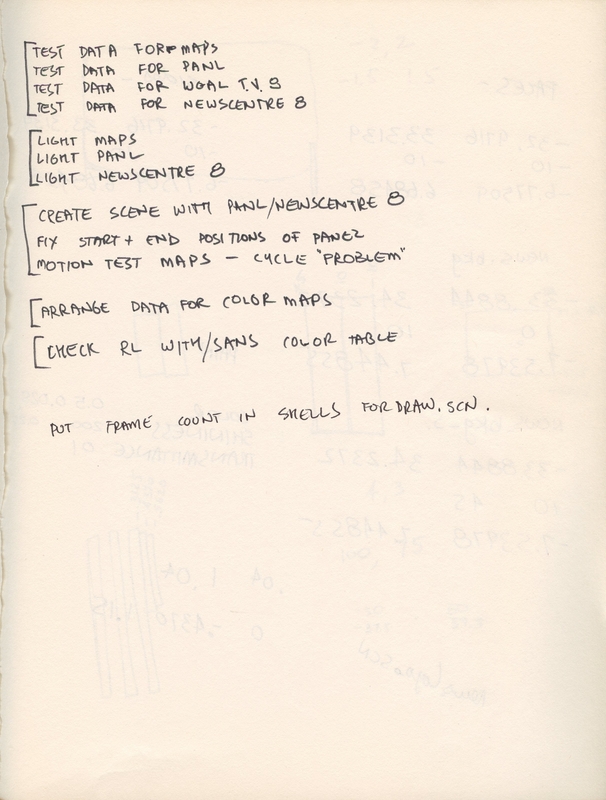 TEST DATA FOR MAPS
TEST DATA FOR PANL
TEST DATA FOR WGAL T.V. 8
TEST DATA FOR NEWSCENTRE 8
LIGHT MAPS
LIGHT PANL
LIGHT NEWSCENTRE 8
CREATE SCENE WITH PANL/NEWSCENTRE 8
FIX START + END POSITIONS OF PANEL
MOTION TEST MAPS - CYCLE "PROBLEM"
ARRANGE DATA FOR COLOR MAPS
CHECK RL WITH/SANS COLOR TABLE
PUT FRAME COUNT IN SHELLS FOR DRAW.SCN.